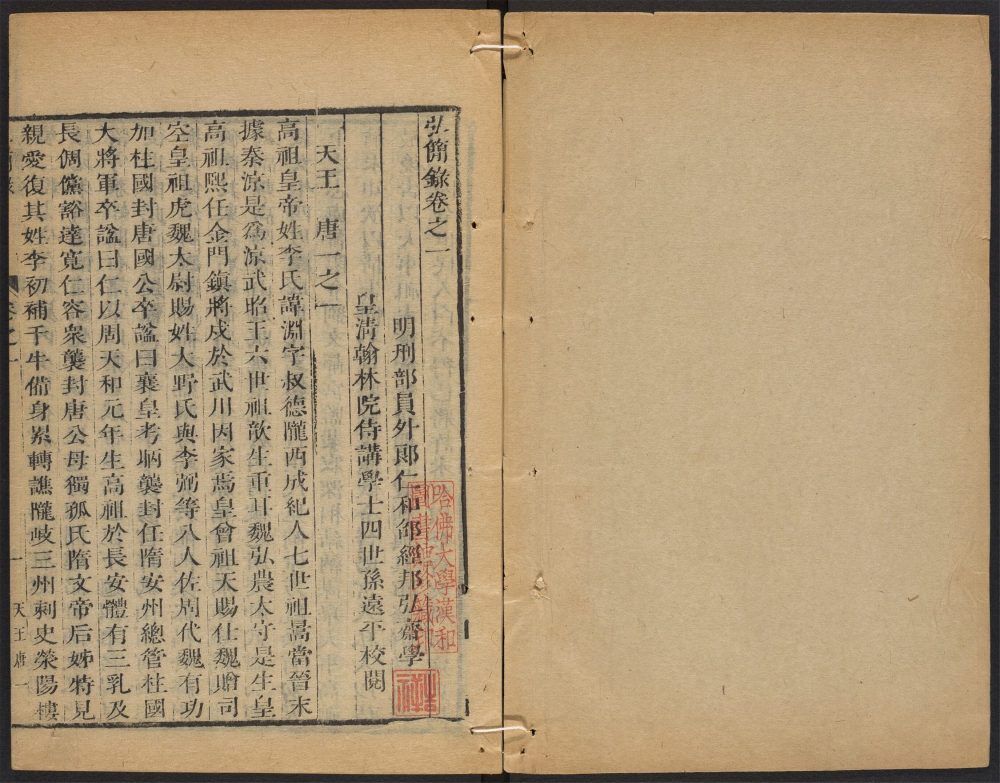 弘簡錄卷之一
明刑部員外郎仁和邵經邦弘齋學
皇清翰林院侍講學士四世孫遠平校閱
天王 唐一之一
高祖皇帝姓李氏諱淵字叔德隴西成紀人七世祖暠當晉末
據秦涼是爲涼武昭王六世祖歆生重耳魏弘農太守是生皇
高祖熙任金門鎮將戍於武川因家焉皇曾祖天賜仕魏贈司
空皇祖虎魏太尉賜姓大野氏與李弼等八人佐周代魏有功
加柱國封唐國公卒諡曰襄皇考昞襲封任隋安州總管柱國
大將軍卒諡曰仁以周天和元年生高祖於長安體有三乳及
長倜儻豁達寬仁容衆襲封唐公母獨孤氏隋文帝后姊特見
親愛復其姓李初補千牛備身累轉譙隴岐三州刺史滎陽樓
卷之一
一
天王唐一
哈佛大學漢和
圖書館珍藏印